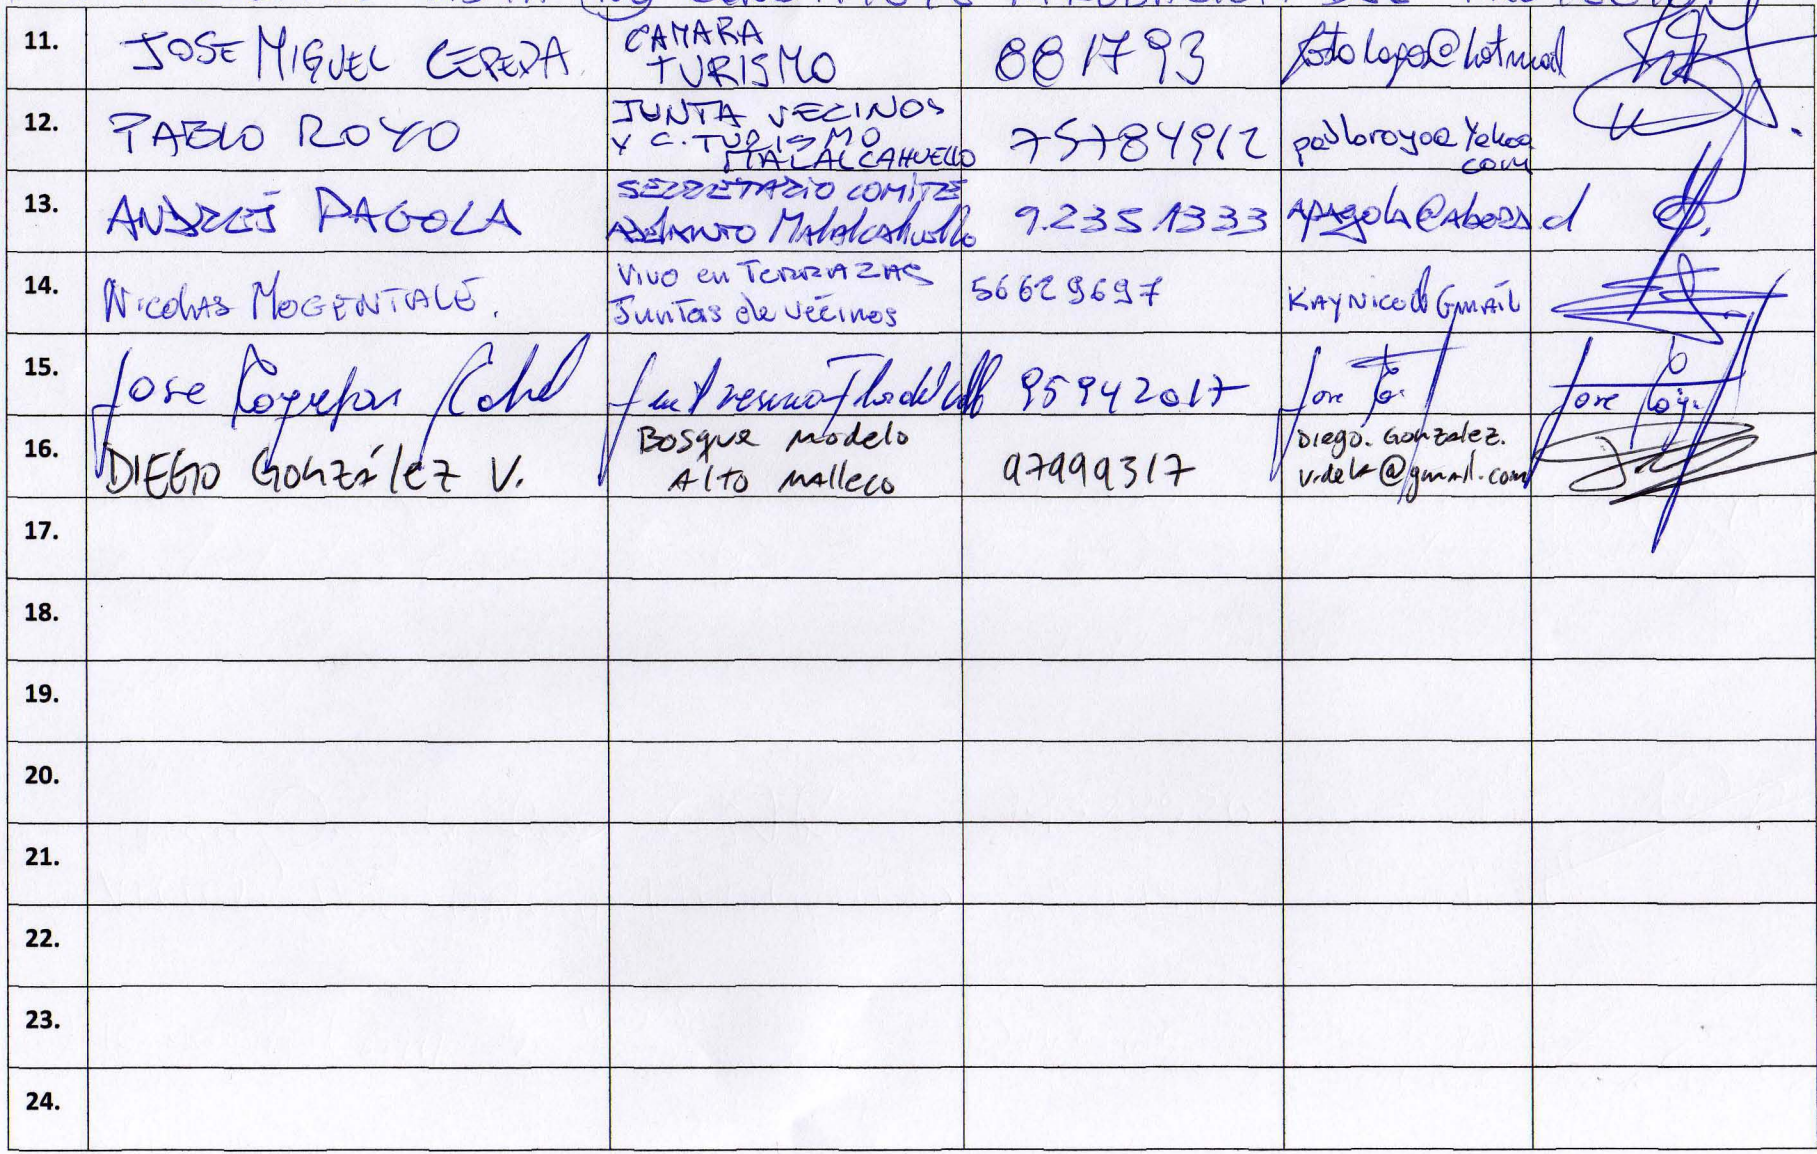 APROBACION DEL PROYECTO
11. JOSE MIGUEL CEPEDA CAMARA TURISMO 881793
12. PABLO ROYO JUNTA VECINOS Y C. TURISMO MALALCAHUELLO 75784912 pabloroyoa Yahoo com
13. ANDRES PAGOLA SECRETARIO COMITE ADELANTO Malalcahuello 9.235.1333
14. Nicolas MOGENTALE. VIVO en TERRAZAS Juntas de vecinos 56629697 KAYNICO@GMAIL
15. Jose 95942017 Jose Jose
16. DIEGO GONZÁlEZ V. BOSQUE MODELO AlTO MAlleco 97999317 DIEGO.GONZALEZ. videla@gmail.com
17.
18.
19.
20.
21.
22.
23.
24.